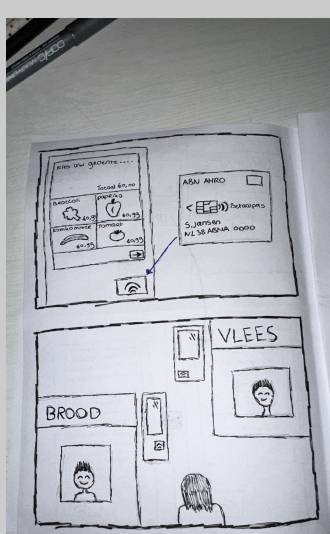 Kies uw groente....
Totaal €0,00
Broccoli
€0,99
paprika
€0,99
komkommer
€0,99
Tomaat
€0,99
ABN AHRO
Betaalpas
S. Jansen
NL38 ABNA 0000
VLEES
BROOD